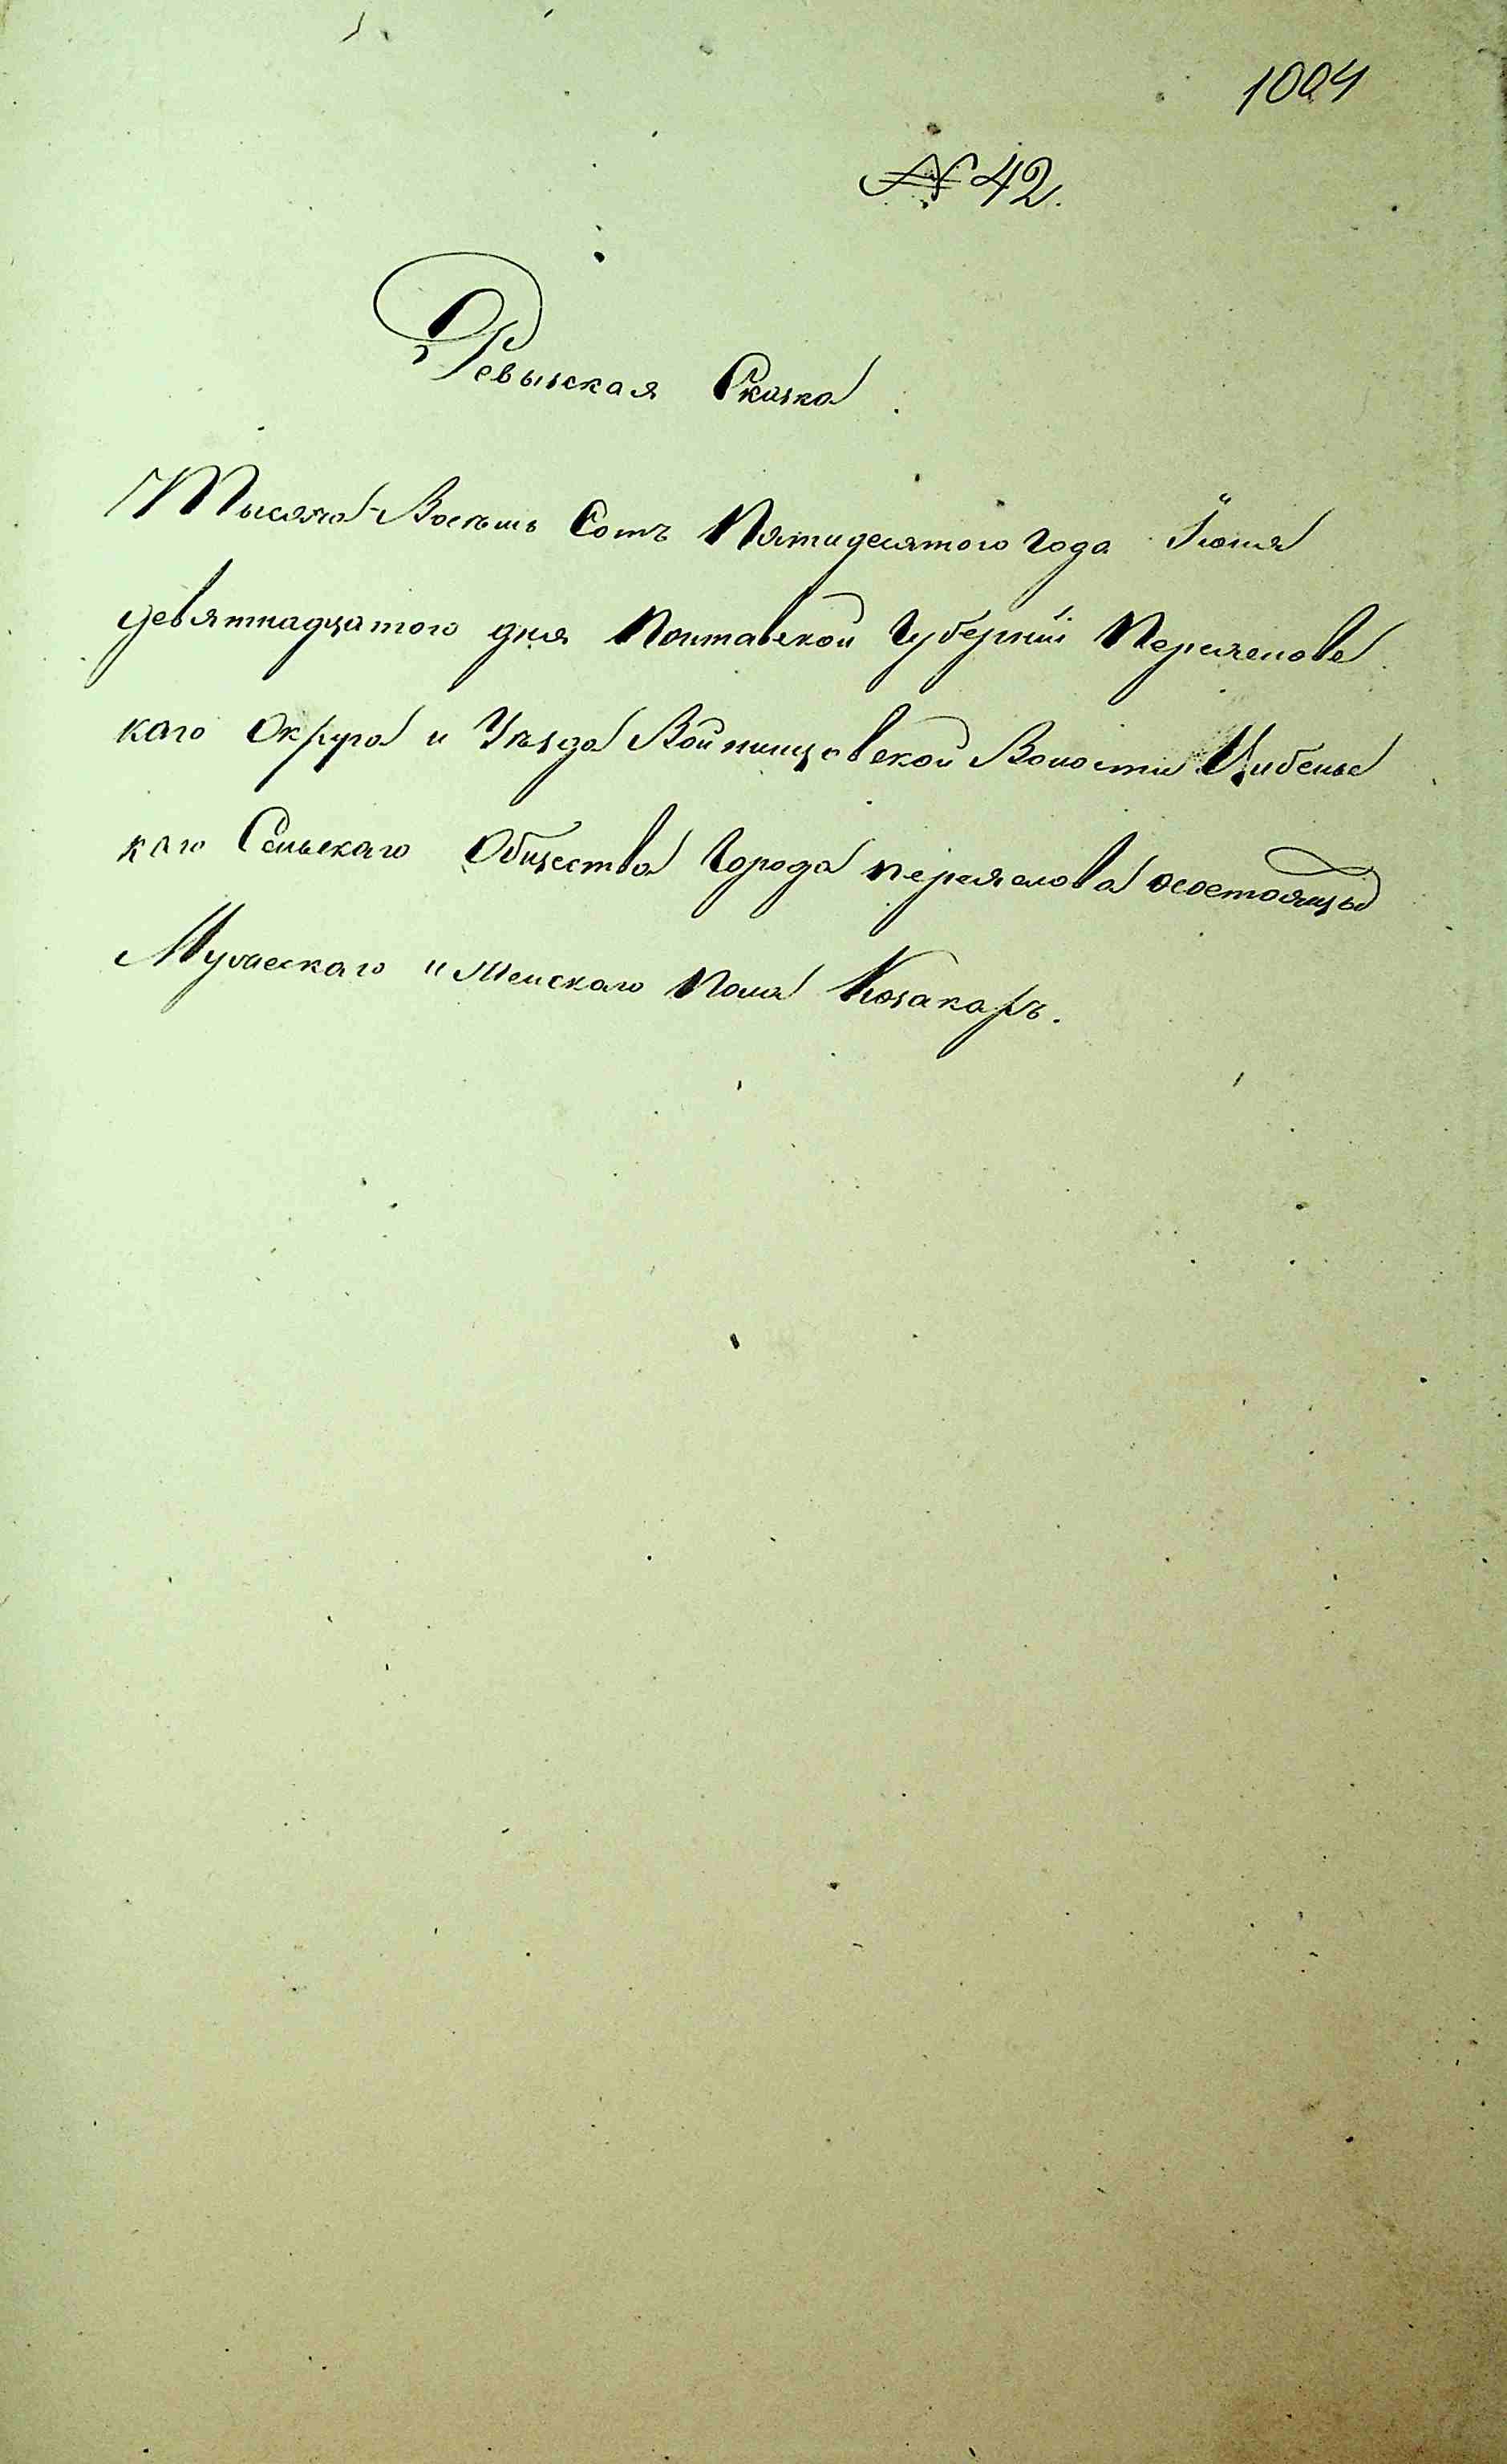 1004
№ 42.
Ревызская Сказка
Тысяча Восемь Сотъ Пятидесятого года Іюня
девятнадцатого дня Полтавской Губерніи Переяслове
каго Округа и Уезда Войтовцовской Волости Цибельс
каго Сельскаго Общества Города переяслова осостоящых
Мужескаго и Женскаго Пола Козакахъ.